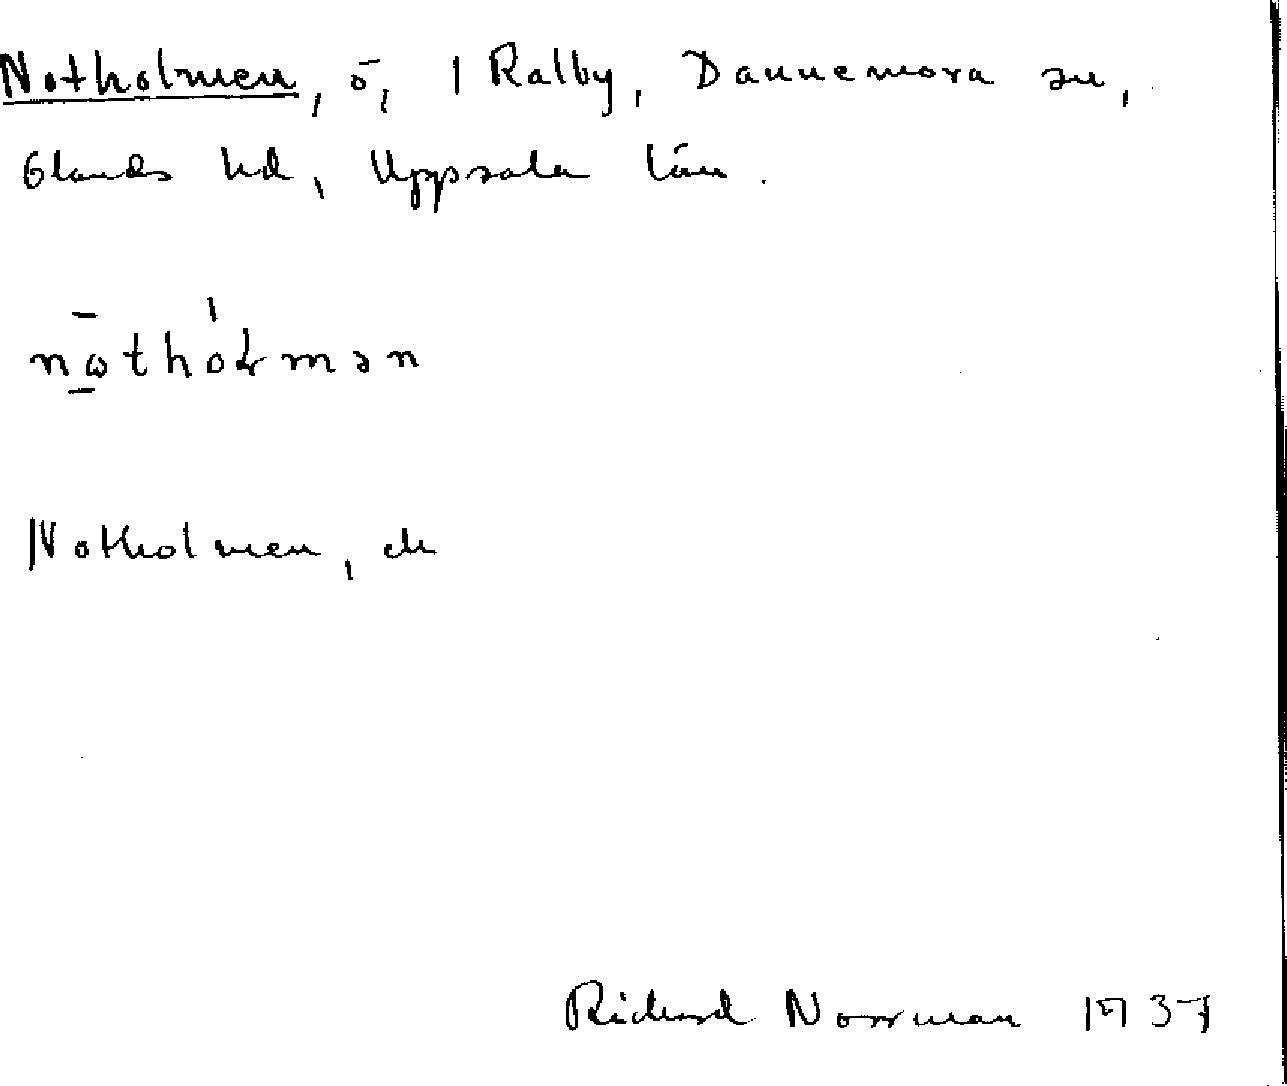 Notholmen, ö, 1 Ralby, Dannemora sn,
Olands hd, Uppsala län.
nōthólmən
Notholmen, ek
Richard Norrman 1937